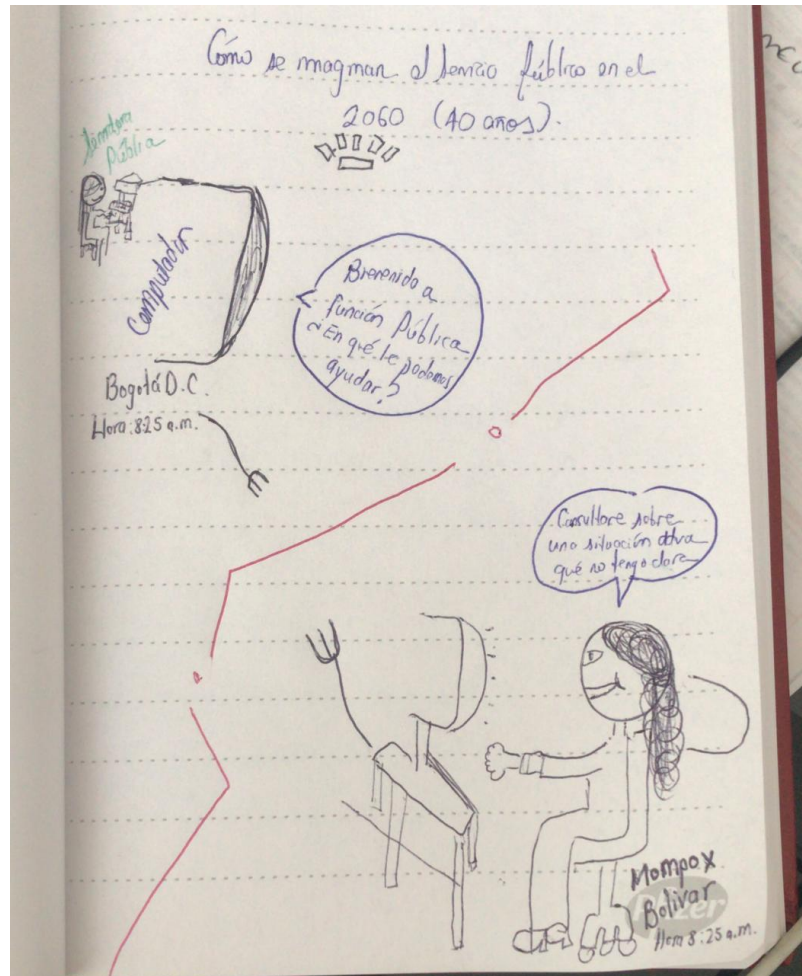 Cómo se imaginan el servicio público en el
2060 (40 años).
Servidora
Pública
Computador
Bienvenido a
función Pública
¿En qué le podemos
ayudar?
Bogotá D.C.
Hora: 8:25 a.m.
sobre
una situación
qué no tengo clara
Mompox
Bolivar
Hora 8:25 a.m.